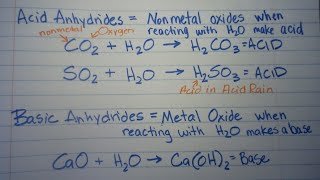 Acid Anhydrides = Nonmetal oxides when
reacting with H₂O make acid
nonmetal Oxygen
CO₂ + H₂O → H₂CO₃ = ACID
SO₂ + H₂O → H₂SO₃ = ACID
Acid in Acid Rain
Basic Anhydrides = Metal Oxide when
reacting with H₂O makes a base
CaO + H₂O → Ca(OH)₂ = Base